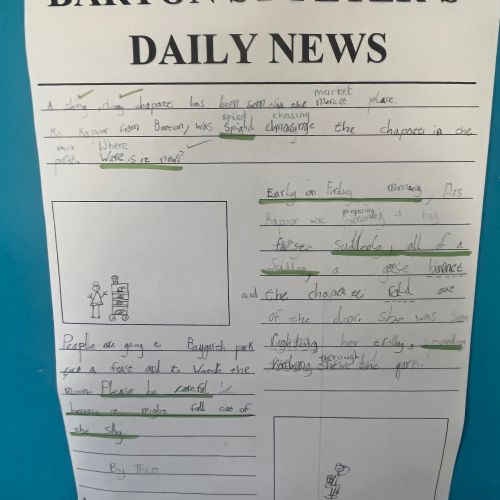 BARTON ST PETER'S
DAILY NEWS
market
A shing, chapatti has been seen in the market place.
spied chasing
Ms Kapoor from Barton, was Spighd the chapatti in the
Where
park Were is it now?
Early on Friday morning, Mrs
Kapoor was preparing a big
feast. Suddnly, all of a
Sudden, a geese bounce
and the chapatti rold out
of the door. She was seen
her trolly,
through
the park.
People are going to park
for a feast and to Watch the
moon Please be careful
because it might fall out of
the sky
By Theo